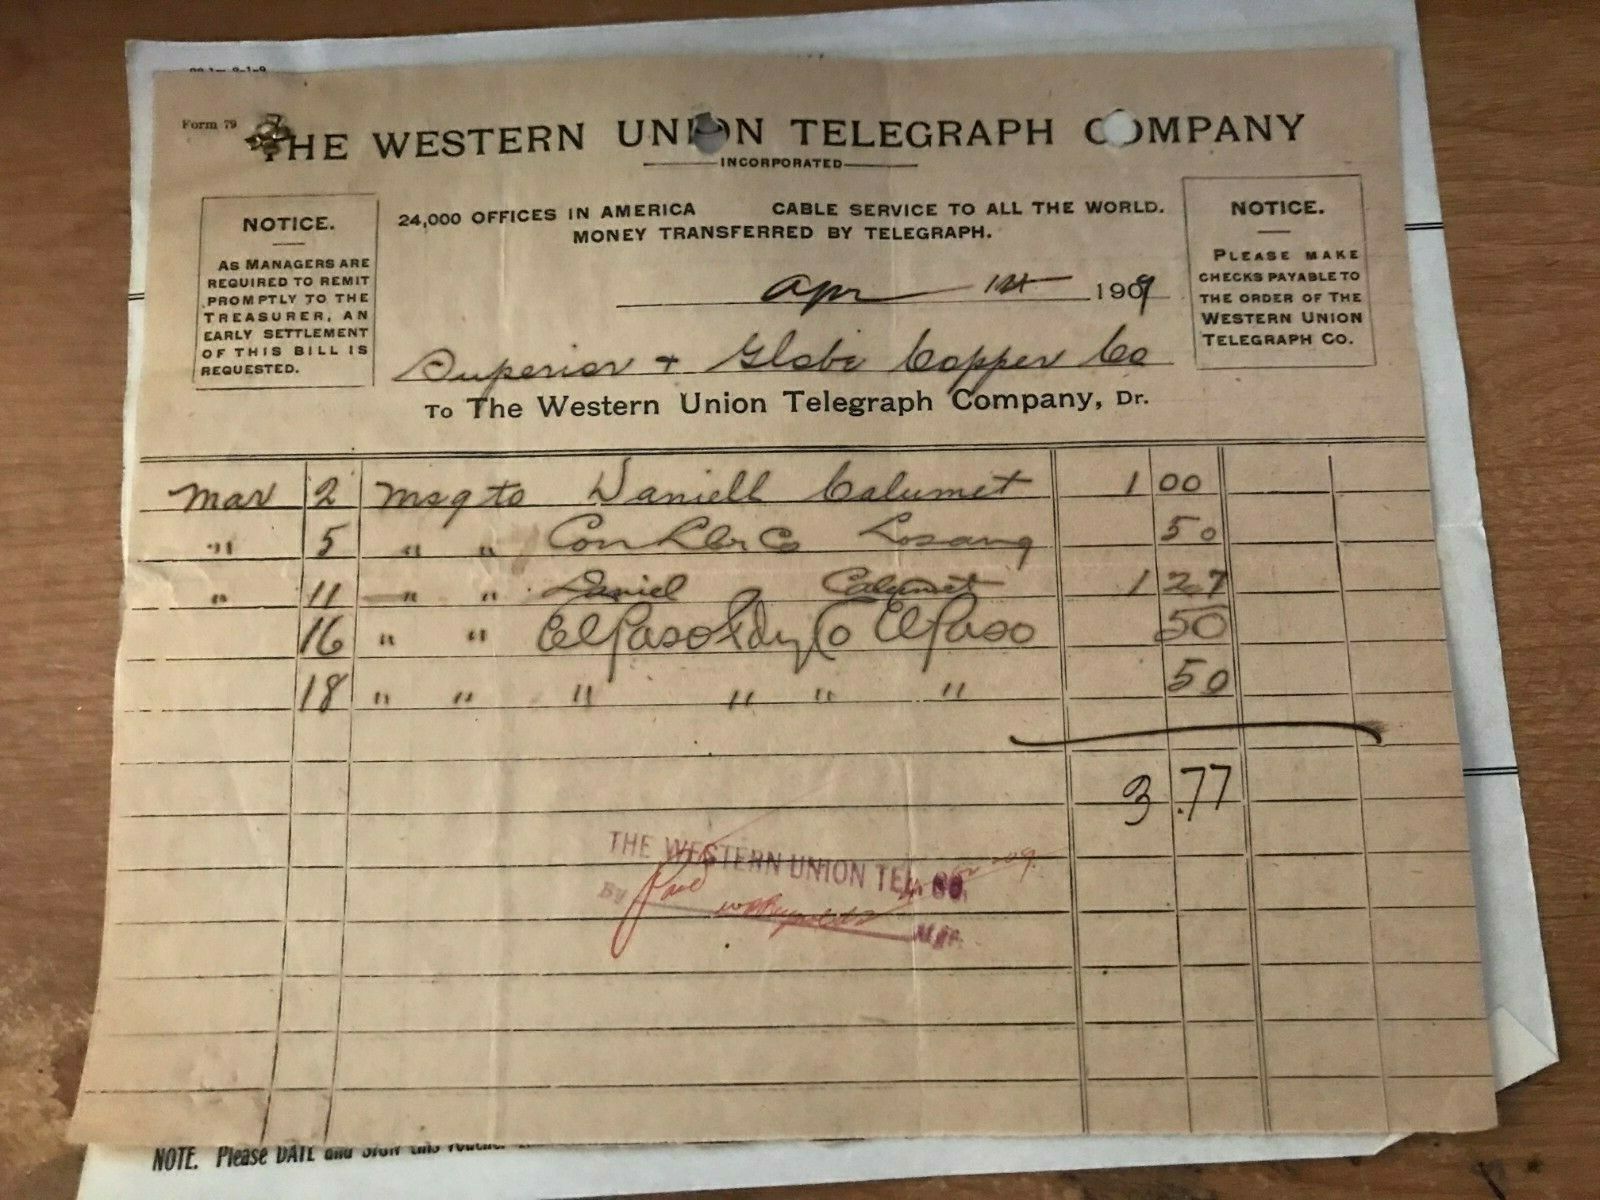 Form 79
THE WESTERN UNION TELEGRAPH COMPANY
INCORPORATED
24,000 OFFICES IN AMERICA CABLE SERVICE TO ALL THE WORLD.
MONEY TRANSFERRED BY TELEGRAPH.
NOTICE.
AS MANAGERS ARE
REQUIRED TO REMIT
PROMPTLY TO THE
TREASURER, AN
EARLY SETTLEMENT
OF THIS BILL IS
REQUESTED.
NOTICE.
PLEASE MAKE
CHECKS PAYABLE TO
THE ORDER OF THE
WESTERN UNION
TELEGRAPH CO.
Apr 1st 1909
Superior + Globe Copper Co
To The Western Union Telegraph Company, Dr.
Mar 2 Msg to Daniell Calumet 1 00
" 5 " " Con Lbr Co Losang 50
" 11 " " Daniel Calumet 1 27
16 " " El Paso Fdy Co El Paso 50
18 " " " " " " 50
3.77
THE WESTERN UNION TEL. CO.
By Paid
MGR.
NOTE. Please DATE and SIGN this voucher